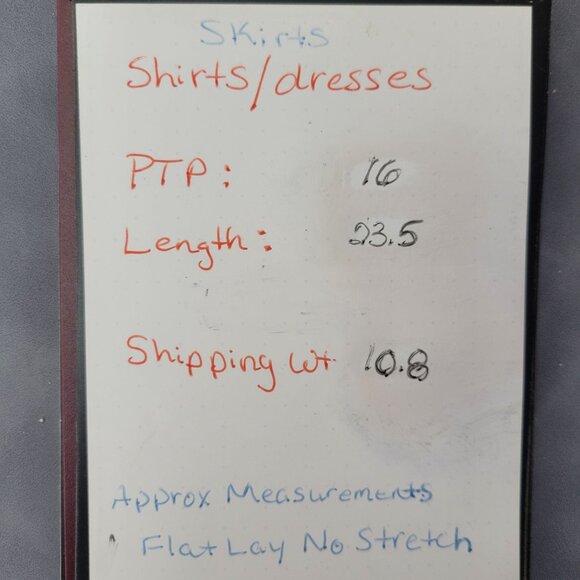 Skirts
Shirts/dresses
PTP: 16
Length: 23.5
Shipping Wt 10.8
Approx Measurements
Flat Lay No Stretch